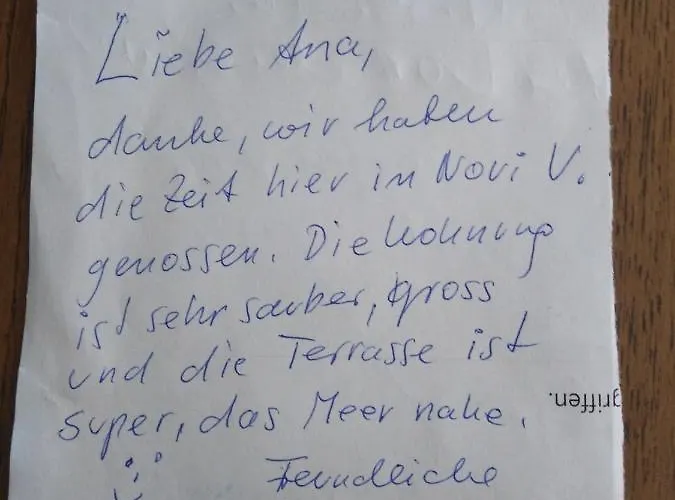 Liebe Ana,
danke, wir haben
die Zeit hier in Novi V.
genossen. Die Wohnung
ist sehr sauber, gross
und die Terrasse ist
super, das Meer nahe.
griffen.
Freundliche